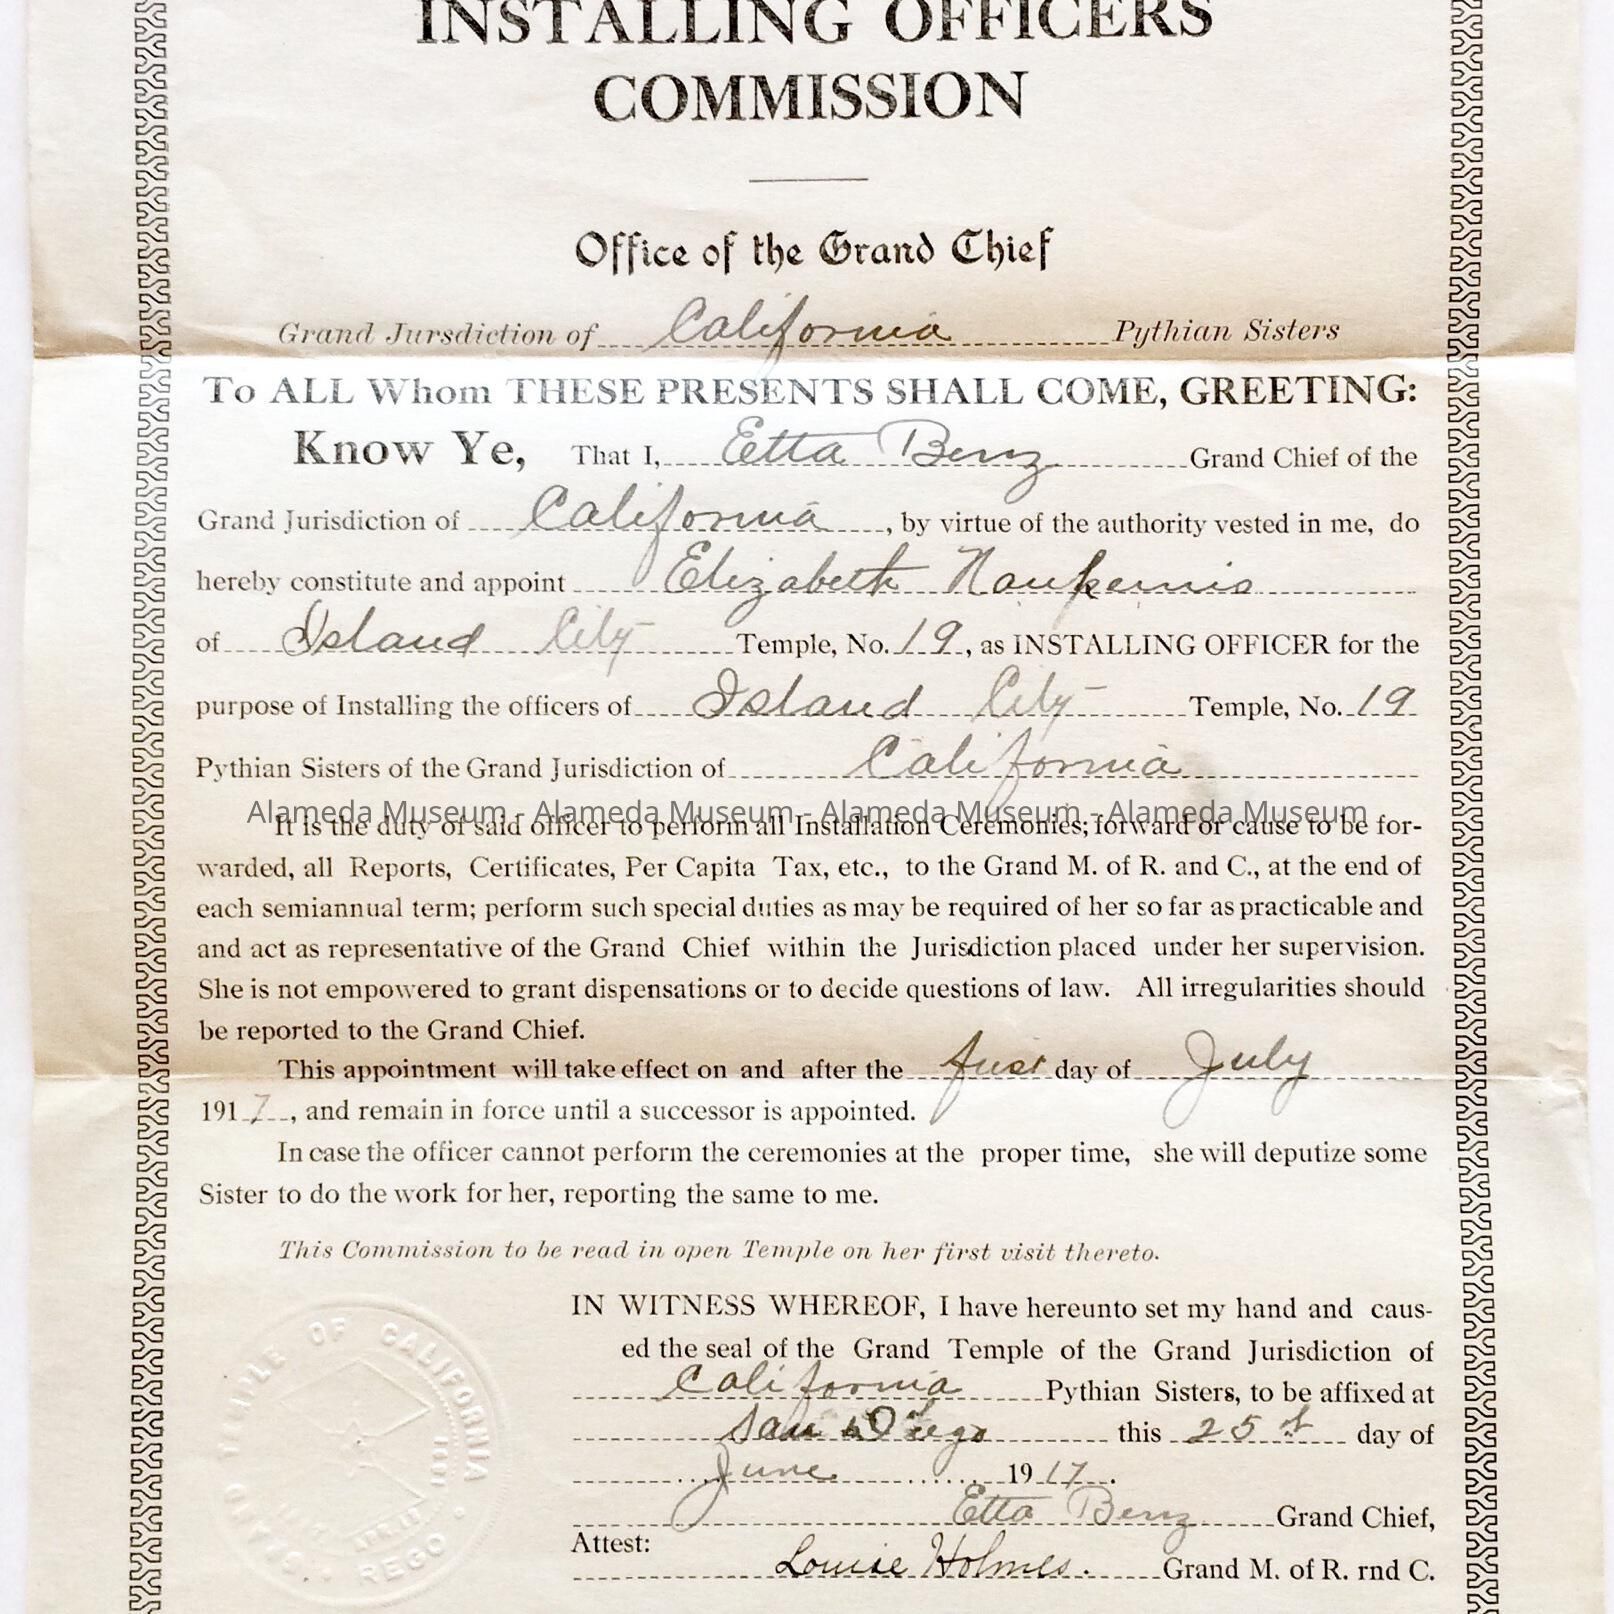 INSTALLING OFFICERS
COMMISSION
Office of the Grand Chief
Grand Jursdiction of California Pythian Sisters
To ALL Whom THESE PRESENTS SHALL COME, GREETING:
Know Ye, That I, Etta Benz Grand Chief of the
Grand Jurisdiction of California, by virtue of the authority vested in me, do
hereby constitute and appoint Elizabeth
of Island City Temple, No. 19, as INSTALLING OFFICER for the
purpose of Installing the officers of Island City Temple, No. 19
Pythian Sisters of the Grand Jurisdiction of California
Alameda Museum - Alameda Museum - Alameda Museum - Alameda Museum
It is the duty of said officer to perform all Installation Ceremonies; forward or cause to be for-
warded, all Reports, Certificates, Per Capita Tax, etc., to the Grand M. of R. and C., at the end of
each semiannual term; perform such special duties as may be required of her so far as practicable and
and act as representative of the Grand Chief within the Jurisdiction placed under her supervision.
She is not empowered to grant dispensations or to decide questions of law. All irregularities should
be reported to the Grand Chief.
This appointment will take effect on and after the first day of July
1917, and remain in force until a successor is appointed.
In case the officer cannot perform the ceremonies at the proper time, she will deputize some
Sister to do the work for her, reporting the same to me.
This Commission to be read in open Temple on her first visit thereto.
IN WITNESS WHEREOF, I have hereunto set my hand and caus-
ed the seal of the Grand Temple of the Grand Jurisdiction of
California Pythian Sisters, to be affixed at
San Diego this 25st day of
June 1917.
Etta Benz Grand Chief,
Attest:
Louise Holmes. Grand M. of R. rnd C.
GRAND TEMPLE OF CALIFORNIA